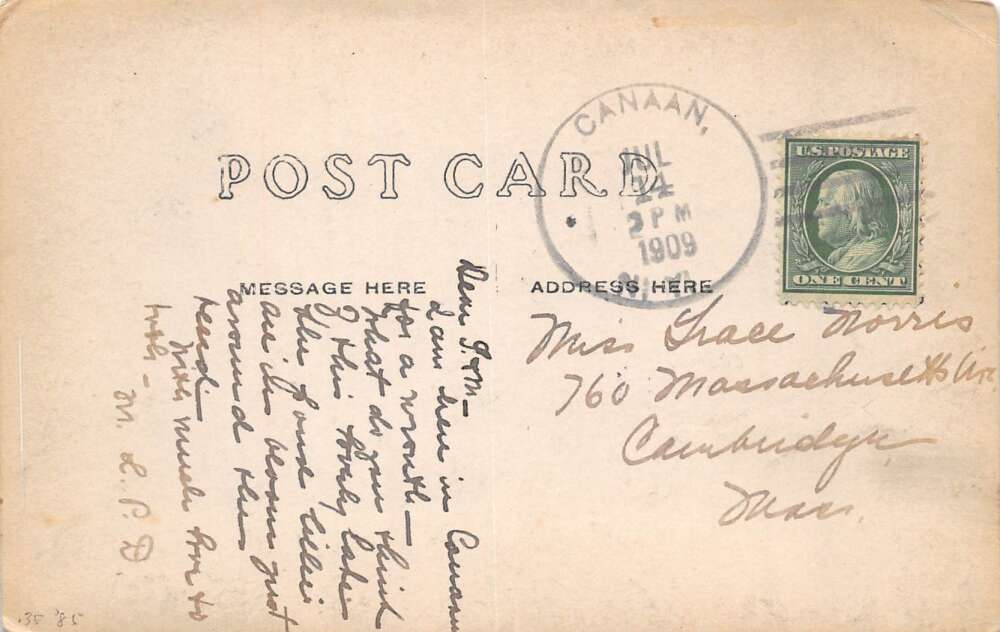 POST CARD
CANAAN,
JUL
24
2 PM
1909
U.S. POSTAGE
ONE CENT
MESSAGE HERE
ADDRESS HERE
Dear
I am here in Canaan
for a month –
What do you think
of this lovely lake?
The pond lilies
are in bloom just
around this
head –
With much love to
M. L. P. D
Miss Grace Norris
760 Massachusetts Ave
Cambridge
Mass.
35 85